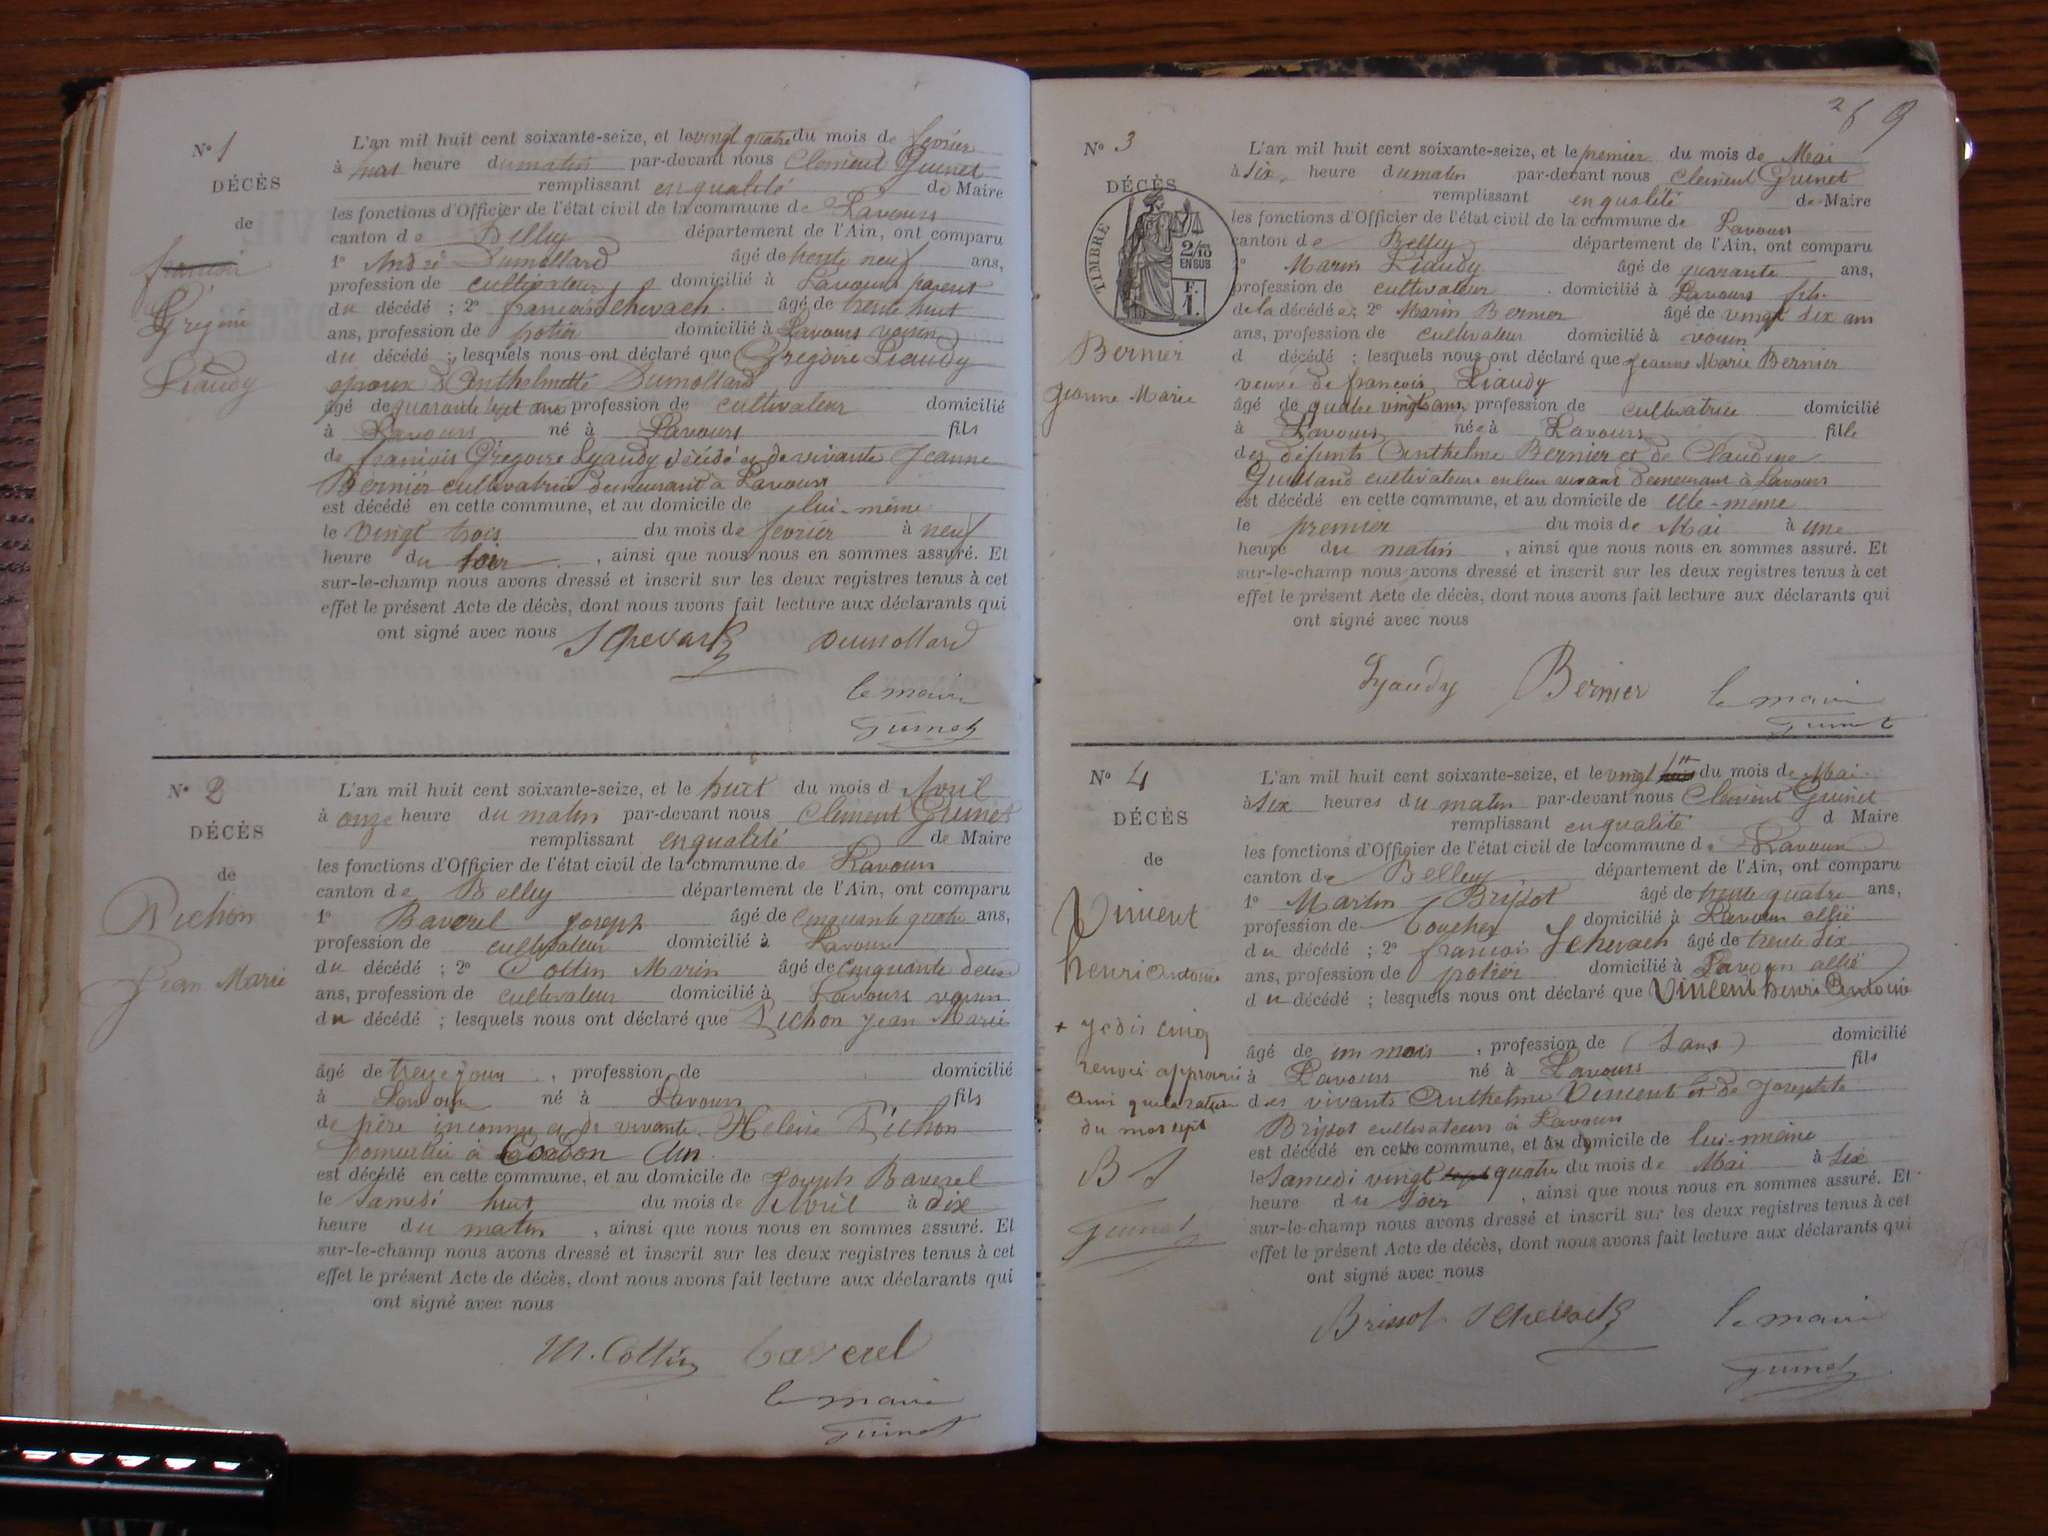 N° 1
DÉCÈS
de
françois
Grégoire
Liaudy
L'an mil huit cent soixante-seize, et le vingt quatre du mois de fevrier
à heure du matin par-devant nous Clement Guinet
remplissant en qualité de Maire
les fonctions d'Officier de l'état civil de la commune de Lavours
canton de Belley département de l'Ain, ont comparu
1° André Dumollard âgé de trente neuf ans,
profession de cultivateur domicilié à Lavours parent
du décédé ; 2° françois Schevach âgé de trente huit
ans, profession de potier domicilié à Lavours voisin
du décédé ; lesquels nous ont déclaré que Gregoire Liaudy
epoux d'Anthelmette Dumollard
âgé de quarante sept ans profession de cultivateur domicilié
à Lavours né à Lavours fils
de françois Grégoire Lyaudy décédé et de vivante Jeanne
Bernier cultivatrice demeurant à Lavours
est décédé en cette commune, et au domicile de lui-même
le vingt trois du mois de fevrier à neuf
heure du soir , ainsi que nous nous en sommes assuré. Et
sur-le-champ nous avons dressé et inscrit sur les deux registres tenus à cet
effet le présent Acte de décès, dont nous avons fait lecture aux déclarants qui
ont signé avec nous Schevach Dumollard
le maire
Guinet
N° 2
DÉCÈS
de
Pichon
Jean Marie
L'an mil huit cent soixante-seize, et le huit du mois d Avril
à onze heure du matin par-devant nous Clement Guinet
remplissant en qualité de Maire
les fonctions d'Officier de l'état civil de la commune de Lavours
canton de Belley département de l'Ain, ont comparu
1° Baverel Joseph âgé de cinquante quatre ans,
profession de cultivateur domicilié à Lavours
du décédé ; 2° Cottin Marin âgé de cinquante deux
ans, profession de cultivateur domicilié à Lavours voisin
du décédé ; lesquels nous ont déclaré que Pichon Jean Marie
âgé de treize jours , profession de domicilié
à Lavours né à Lavours fils
de père inconnu et de vivante Helène Pichon
domiciliée à Cordon Ain
est décédé en cette commune, et au domicile de Joseph Baverel
le Samedi huit du mois de Avril à dix
heure du matin , ainsi que nous nous en sommes assuré. Et
sur-le-champ nous avons dressé et inscrit sur les deux registres tenus à cet
effet le présent Acte de décès, dont nous avons fait lecture aux déclarants qui
ont signé avec nous
M. Cottin Baverel
le maire
Guinet
26 9
N° 3
DÉCÈS
TIMBRE
2/10 EN SUS
F. 1.
Bernier
Jeanne Marie
L'an mil huit cent soixante-seize, et le premier du mois de Mai
à six heure du matin par-devant nous Clement Guinet
remplissant en qualité de Maire
les fonctions d'Officier de l'état civil de la commune de Lavours
canton de Belley département de l'Ain, ont comparu
1° Marin Liaudy âgé de quarante ans,
profession de cultivateur domicilié à Lavours fils
de la décédée ; 2° Marin Bernier âgé de vingt six ans
ans, profession de cultivateur domicilié à voisin
d décédé ; lesquels nous ont déclaré que Jeanne Marie Bernier
veuve de françois Liaudy
âgé de quatre vingts ans, profession de cultivatrice domicilié
à Lavours née à Lavours fille
des défunts Anthelme Bernier et de Claudine
Guilland cultivateurs en leur vivant demeurant à Lavours
est décédé en cette commune, et au domicile de elle-meme
le premier du mois de Mai à une
heure du matin , ainsi que nous nous en sommes assuré. Et
sur-le-champ nous avons dressé et inscrit sur les deux registres tenus à cet
effet le présent Acte de décès, dont nous avons fait lecture aux déclarants qui
ont signé avec nous
Lyaudy Bernier le maire
Guinet
N° 4
DÉCÈS
de
Vincent
henri Antoine
+ je dis cinq
renvoi approuvé
ainsi que la rature
du mot sept
B S
Guinet
L'an mil huit cent soixante-seize, et le vingt du mois de Mai
à six heures du matin par-devant nous Clement Guinet
remplissant en qualité d Maire
les fonctions d'Officier de l'état civil de la commune de Lavours
canton de Belley département de l'Ain, ont comparu
1° Martin Brissot âgé de trente quatre ans,
profession de domicilié à Lavours allié
du décédé ; 2° françois Schevach âgé de trente six
ans, profession de potier domicilié à Lavours allié
du décédé ; lesquels nous ont déclaré que Vincent henri Antoine
âgé de un mois , profession de (Sans) domicilié
à Lavours né à Lavours fils
des vivants Anthelme Vincent et de Josephte
Brissot cultivateurs à Lavours
est décédé en cette commune, et au domicile de lui-même
le Samedi vingt sept quatre du mois de Mai à six
heure du soir , ainsi que nous nous en sommes assuré. Et
sur-le-champ nous avons dressé et inscrit sur les deux registres tenus à cet
effet le présent Acte de décès, dont nous avons fait lecture aux déclarants qui
ont signé avec nous
Brissot Schevach le maire
Guinet